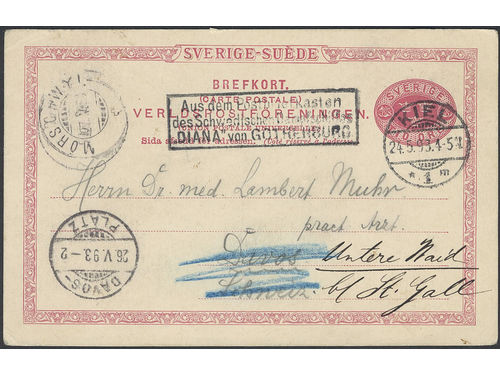 SVERIGE-SUÈDE
BREFKORT.
(CARTE POSTALE)
VERLDSPOSTFÖRENINGEN.
Sida
(Côté réservé à l'adresse.)
Aus dem Postbriefkasten
des Schwedischen
"DIANA" von GOTHENBURG
SVERIGE
KIEL
24.5.93.4-5N.
* 1 m
MÖRSCHWYL
Herrn Dr. med. Lambert Muhr
pract. Arzt.
Davos
Schweiz
Untere Waid
b/ St. Gall
DAVOS-
26.V.93.-2
PLATZ